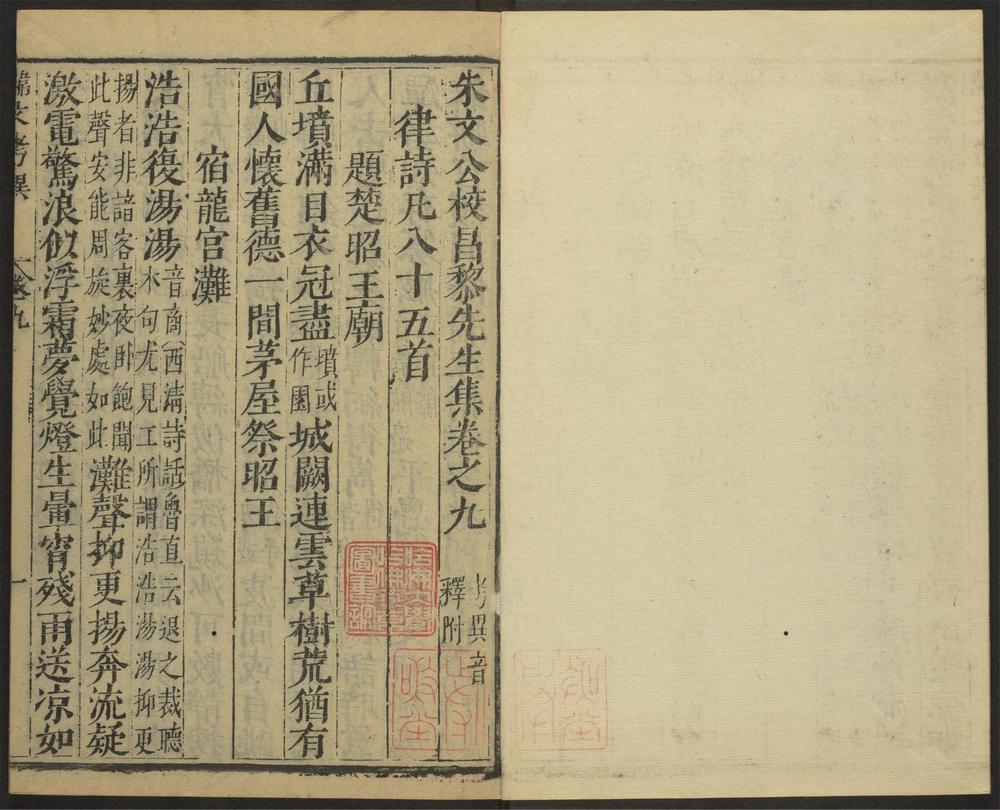 朱文公校昌黎先生集卷之九 考異音釋附
律詩凡八十五首
題楚昭王廟
丘墳滿目衣冠盡墳或作園城闕連雲草樹荒猶有
國人懷舊德一間茅屋祭昭王
宿龍宮灘
浩浩復湯湯音商西清詩話魯直云退之裁聽水句尤見工所謂浩浩湯湯抑更
揚者非諳客裏夜卧飽聞此聲安能周旋妙處如此灘聲抑更揚奔流疑
激電驚浪似浮霜夢覺燈生暈宵殘雨送凉如
韓文考異 卷九 一
圖書館